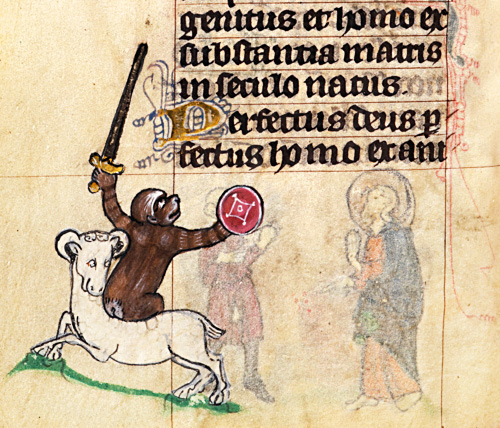 genitus et homo ex
substantia matris
in seculo natus.
Perfectus deus p
fectus homo ex ani